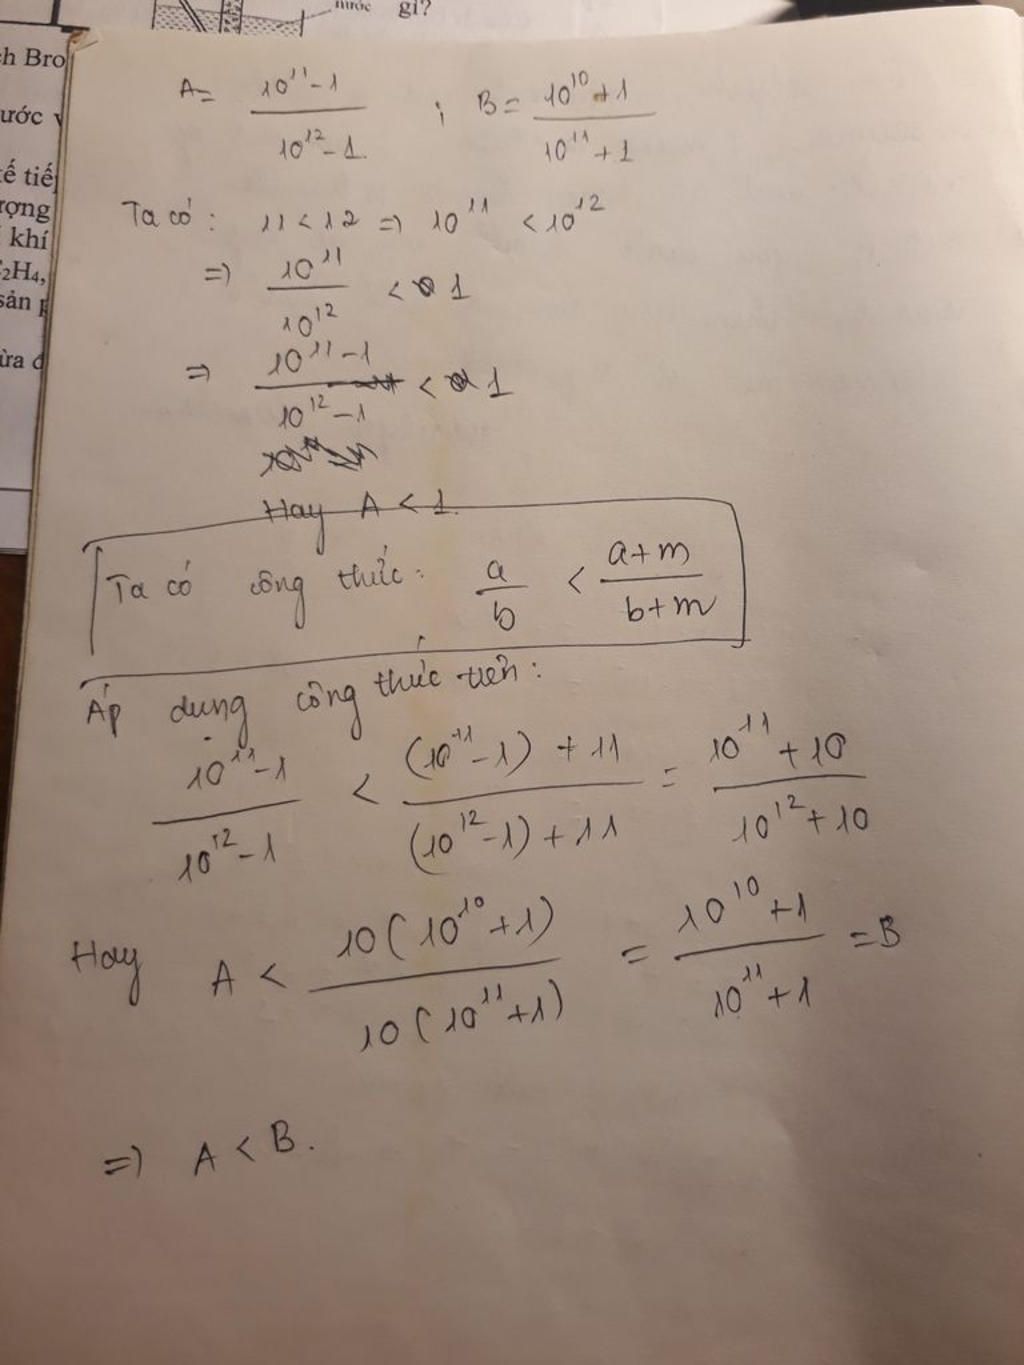 nước gì?
h Bro
ước
ế tiế
ượng
khí
2H4,
sản
ừa đ
A = \frac{10^{11}-1}{10^{12}-1} ; B = \frac{10^{10}+1}{10^{11}+1}
Ta có : 11 < 12 => 10^{11} < 10^{12}
=> \frac{10^{11}}{10^{12}} < 1
=> \frac{10^{11}-1}{10^{12}-1} < 1
Hay A < 1.
Ta có công thức: \frac{a}{b} < \frac{a+m}{b+m}
Áp dụng công thức trên:
\frac{10^{11}-1}{10^{12}-1} < \frac{(10^{11}-1)+11}{(10^{12}-1)+11} = \frac{10^{11}+10}{10^{12}+10}
Hay A < \frac{10(10^{10}+1)}{10(10^{11}+1)} = \frac{10^{10}+1}{10^{11}+1} = B
=> A < B.